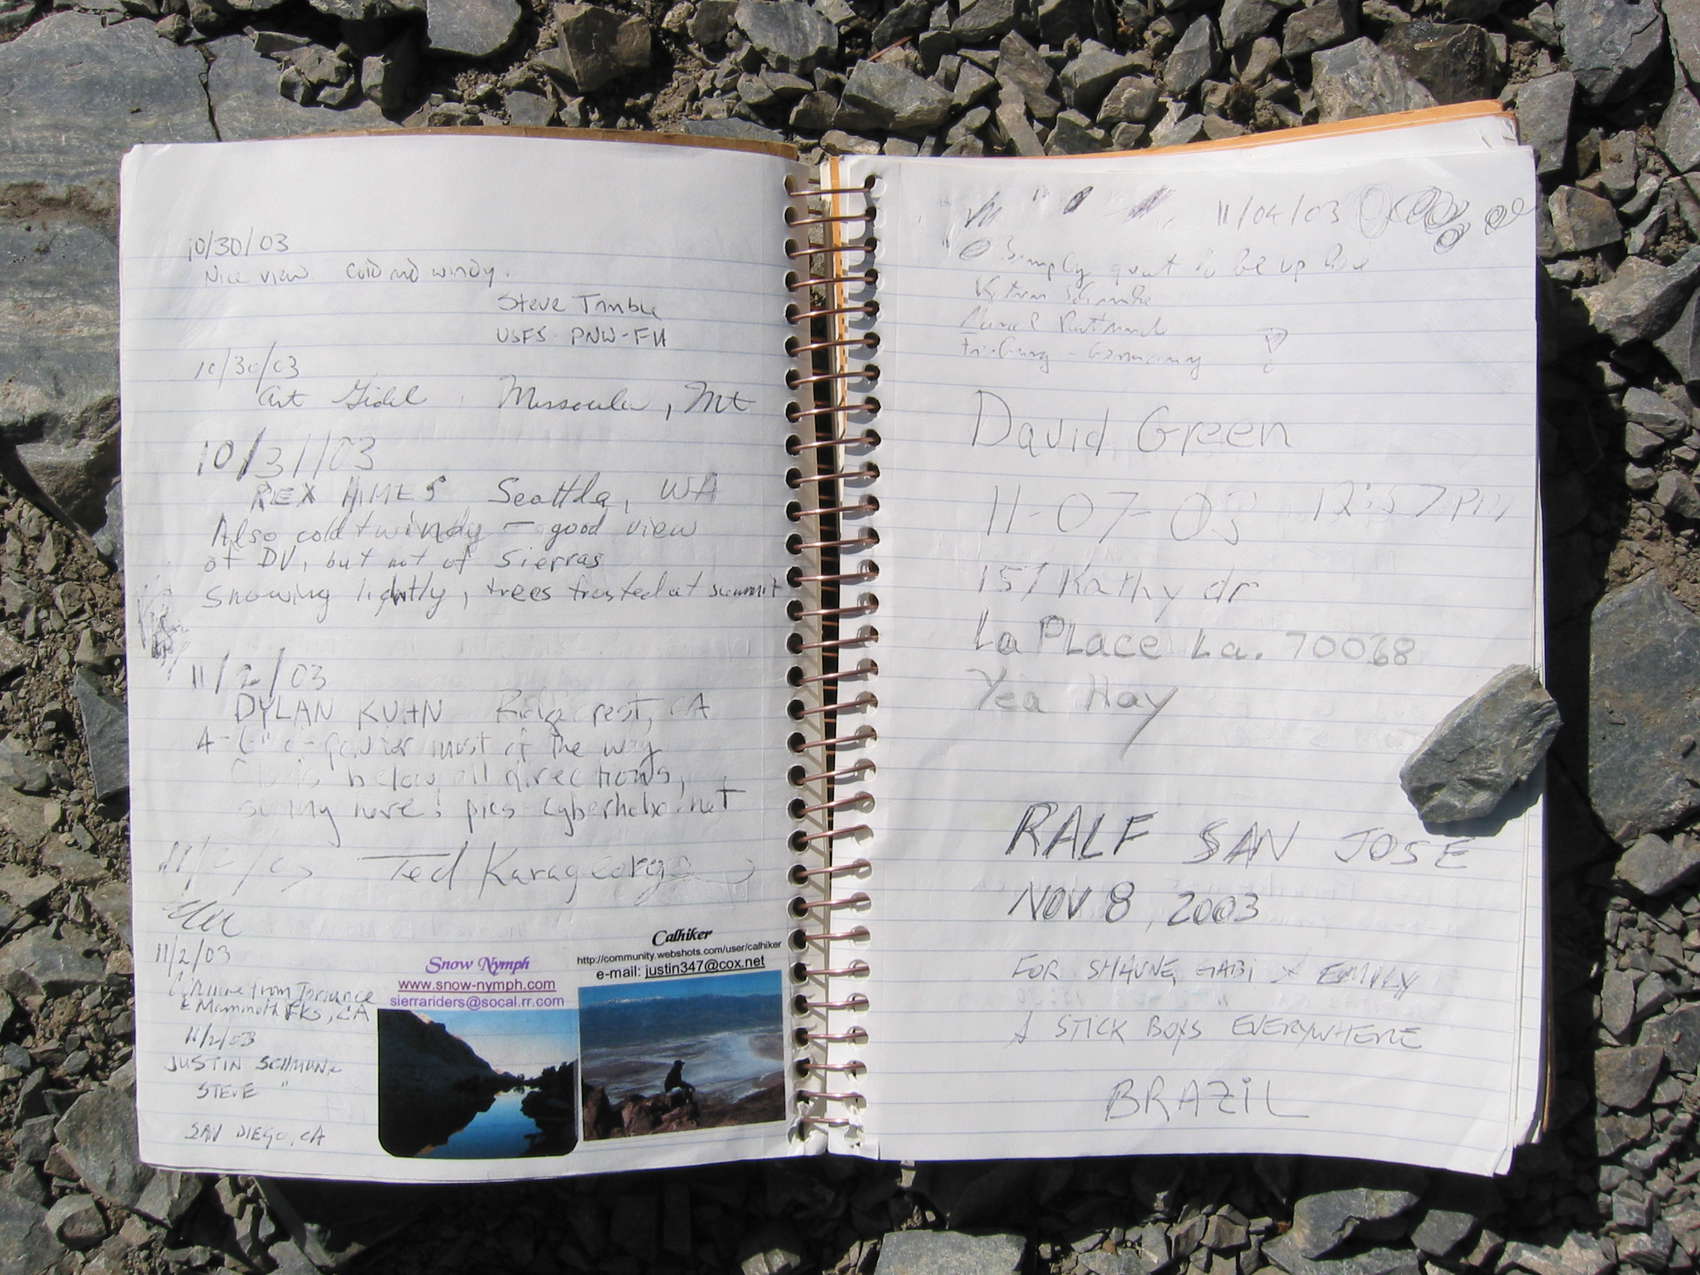 10/30/03
Nice view cold and windy.
Steve Trimble
USFS PNW-FIA
10/30/03
Art Gidel, Missoula, Mt
10/31/03
REX HIMES Seattle, WA
Also cold + windy — good view
of DV, but not of Sierras
Snowing lightly, trees frosted at summit
11/2/03
DYLAN KUHN Ridgecrest, CA
4-6" powder most of the way
below all directions,
pics cyberhobo.net
11/2/03 Ted
11/2/03
from Torrance
& Mammoth Lks, CA
11/2/03
JUSTIN
STEVE "
SAN DIEGO, CA
Snow Nymph
www.snow-nymph.com
sierrariders@socal.rr.com
Calhiker
http://community.webshots.com/user/calhiker
e-mail: justin347@cox.net
11/04/03
Simply great to be up here
Freiburg - Germany
David Green
11-07-03 12:57 PM
157 Kathy dr
La PLace La. 70068
Yea Hay
RALF SAN JOSE
NOV 8, 2003
FOR SHAUNE, GABI & EMILY
& STICK BOYS EVERYWHERE
BRAZIL